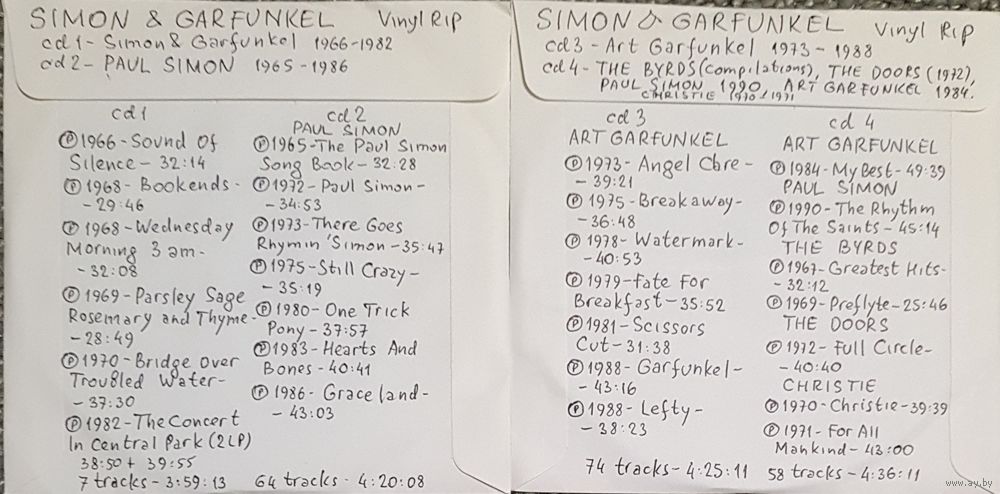 SIMON & GARFUNKEL Vinyl Rip
cd1- Simon & Garfunkel 1966-1982
cd2- PAUL SIMON 1965-1986
cd1
℗1966-Sound Of
Silence- 32:14
℗1968-Bookends-
-29:46
℗1968-Wednesday
Morning 3 am-
-32:08
℗1969-Parsley Sage
Rosemary and Thyme-
-28:49
℗1970-Bridge Over
Troubled Water-
-37:30
℗1982-The Concert
In Central Park (2LP)
38:50+ 39:55
7 tracks- 3:59:13
cd2
PAUL SIMON
℗1965-The Paul Simon
Song Book-32:28
℗1972-Paul Simon-
-34:53
℗1973-There Goes
Rhymin'Simon-35:47
℗1975-Still Crazy-
-35:19
℗1980-One Trick
Pony-37:57
℗1983-Hearts And
Bones-40:41
℗1986-Graceland-
-43:03
64 tracks- 4:20:08
SIMON & GARFUNKEL Vinyl Rip
cd3-Art Garfunkel 1973-1988
cd4-THE BYRDS(compilations), THE DOORS (1972),
PAUL SIMON 1990, ART GARFUNKEL 1984.
CHRISTIE 1970,1971
cd 3
ART GARFUNKEL
℗1973-Angel Clare-
-39:21
℗1975-Breakaway-
-36:48
℗1978-Watermark-
-40:53
℗1979-Fate For
Breakfast-35:52
℗1981-Scissors
Cut-31:38
℗1988-Garfunkel-
-43:16
℗1988-Lefty-
-38:23
74 tracks-4:25:11
cd 4
ART GARFUNKEL
℗1984-My Best-49:39
PAUL SIMON
℗1990-The Rhythm
Of The Saints-45:14
THE BYRDS
℗1967-Greatest Hits-
-32:12
℗1969-Preflyte-25:46
THE DOORS
℗1972-Full Circle-
-40:40
CHRISTIE
℗1970-Christie-39:39
℗1971-For All
Mankind-43:00
58 tracks-4:36:11
www.ay.by